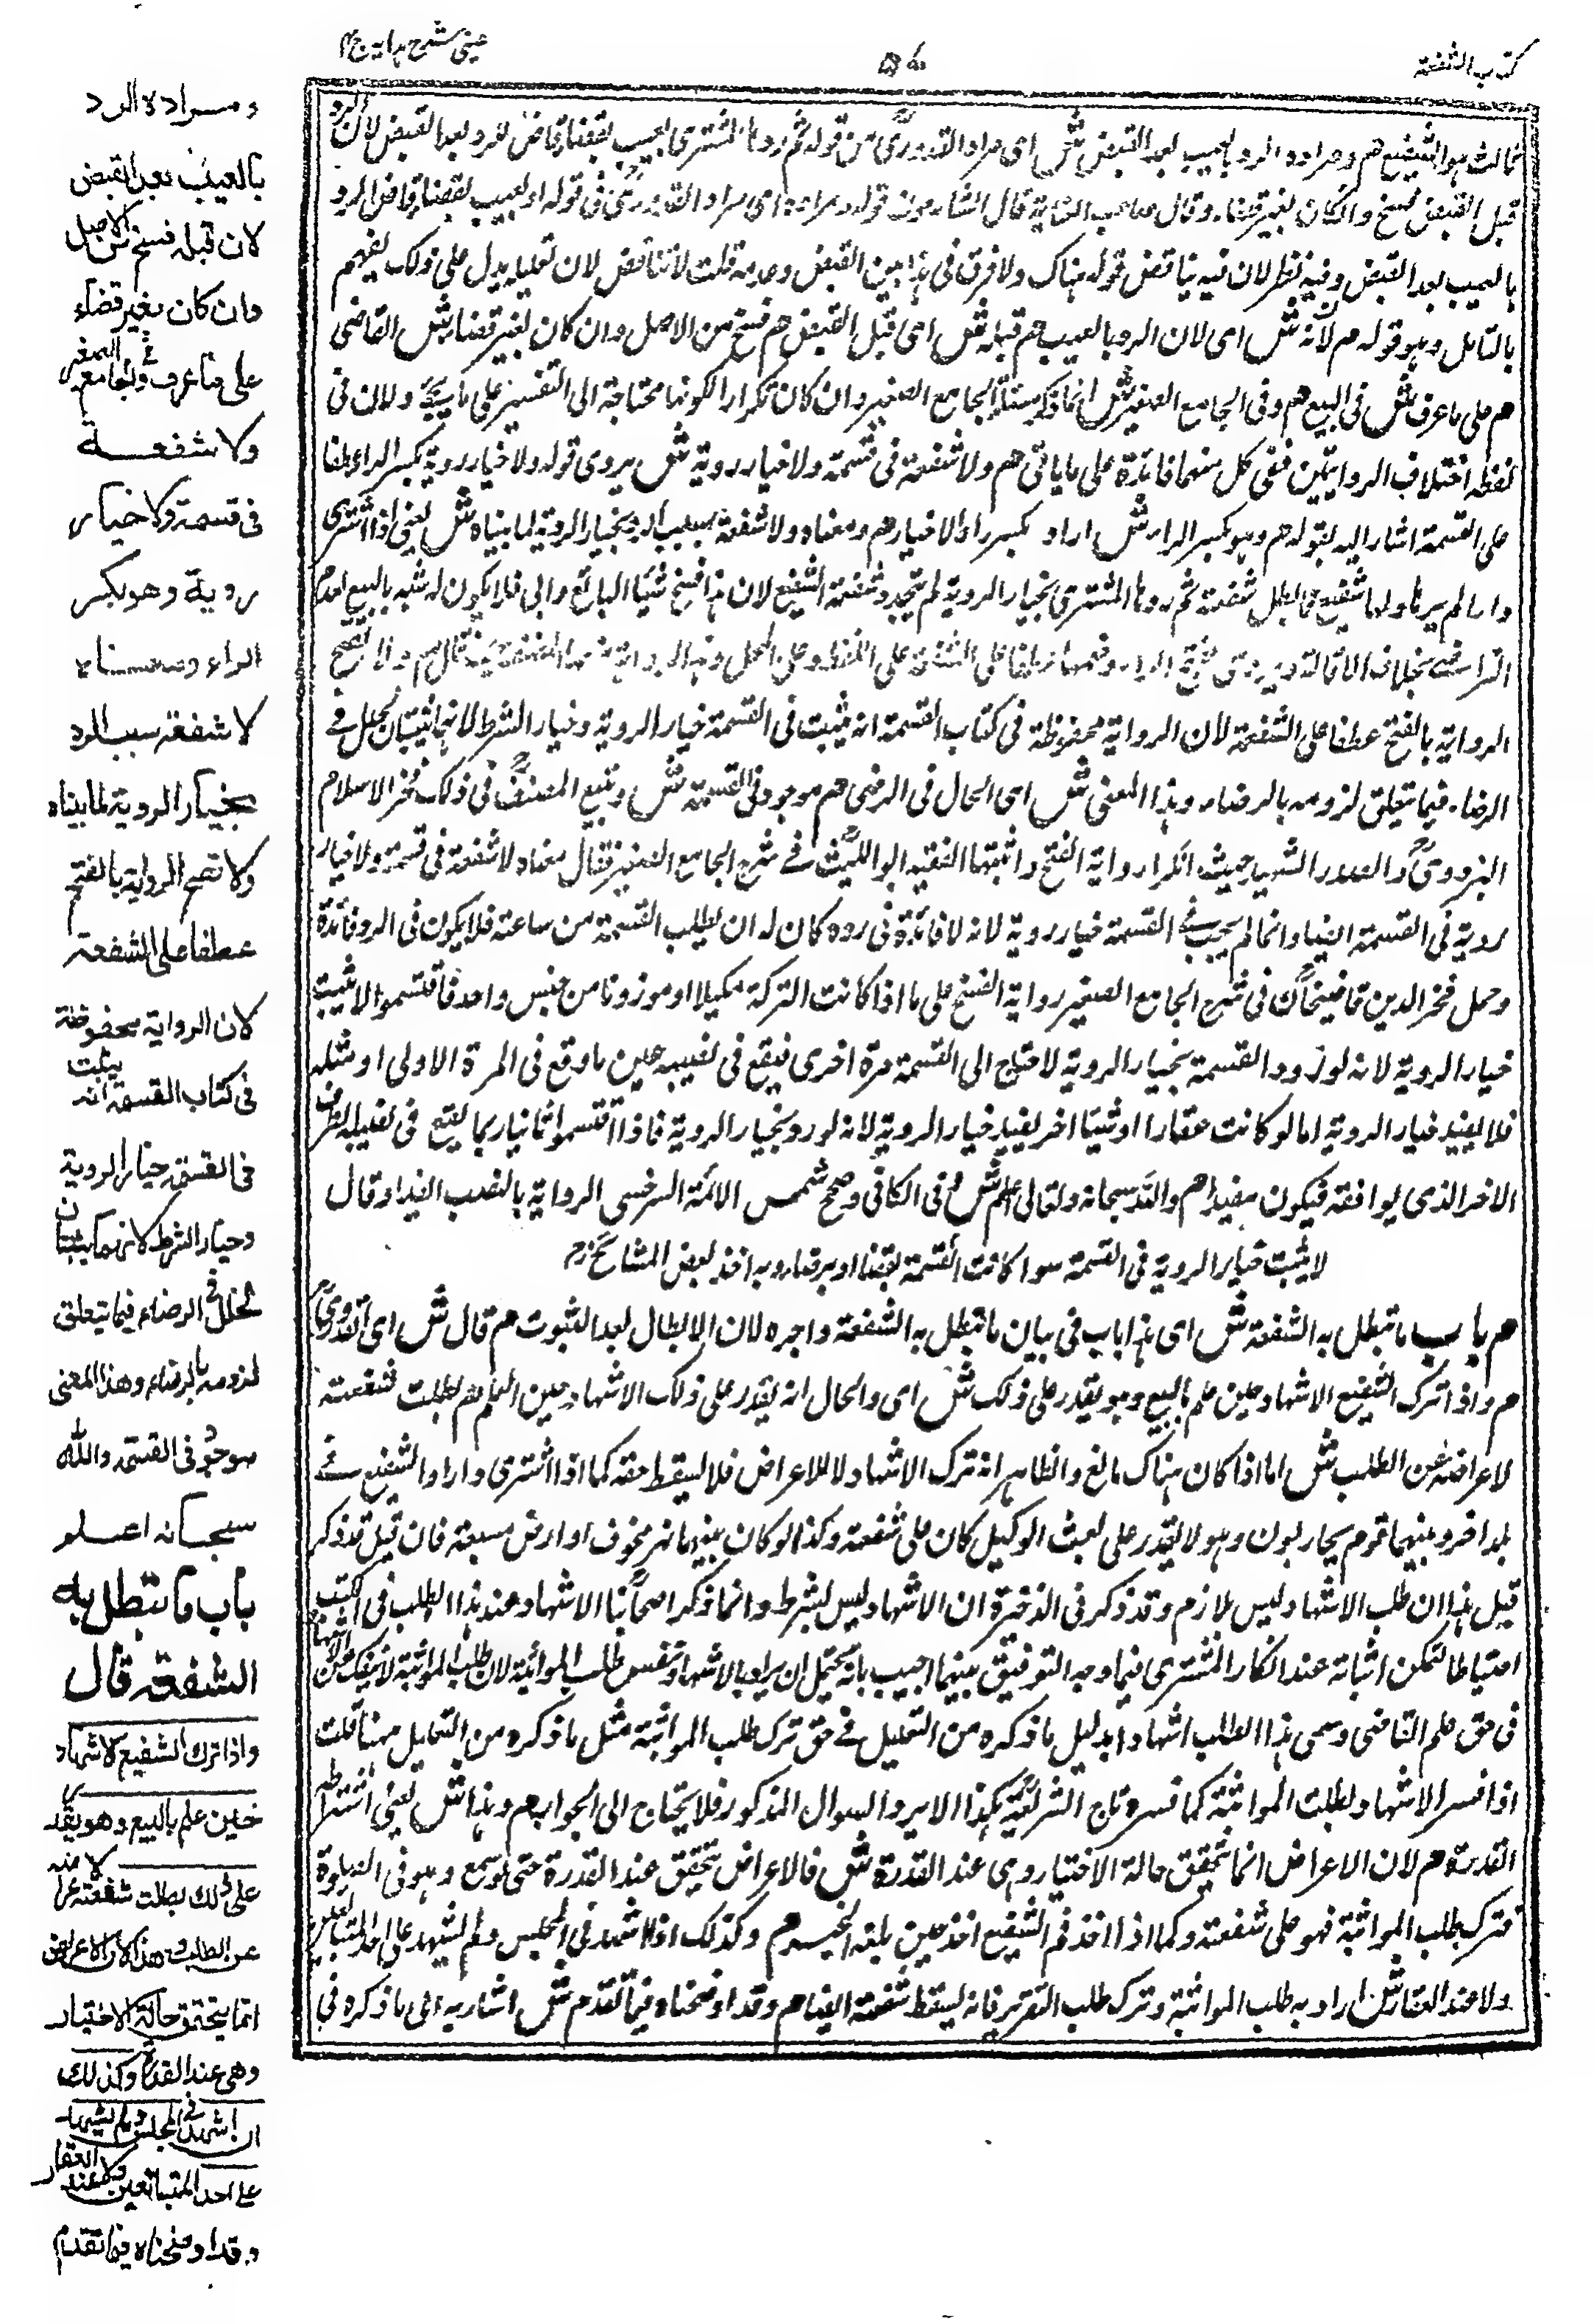 كتاب الشفعة
عينى شرح هداية ج
ثالث هو الشفيع هم ومراده الرد بالعيب بعد القبض ش اى مراد القدورى من قوله ثم ردها المشترى بعيب بقضاء قاض الرد بعد القبض لان الرد
قبل القبض فسخ وان كان بغير قضاء وقال صاحب قال قوله ومراده اى مراد القدورى فى قوله او بعيب بقضاء قاض الرد
بالعيب بعد القبض وفيه نظر لان فيه يناقض قوله هناك ولا فرق فى هذا بين القبض وعدمه قلت لا تناقض لان تعليله يدل على ذلك يفهم
بالتامل وهو قوله م لانه ش اى لان الرد بالعيب هم قبله ش اى قبل القبض هم فسخ من الاصل وان كان بغير قضاء ش القاضى
هم على ما عرف ش فى البيع هم وفى الجامع الصغير ش انما ذكر مسئلة الجامع الصغير وان كان تكرارا لكونها محتاجة الى التفسير على ما يجئ ولان فى
لفظه اختلاف الروايتين ففى كل منهما فائدة على ما ياتى هم ولا شفعة فى قسمة ولا خيار روية ش يروى قوله ولا خيار روية بكسر الراء عطفا
على القسمة اشار اليه بقوله هم وهو بكسر الراء ش اراد بكسر راء ولا خيار هم ومعناه ولا شفعة بسبب الرد بخيار الروية لما بيناه ش يعنى اذا اشترى
دارا لم يرها ولها شفيع فابطل شفعته ثم ردها المشترى بخيار الروية لم تتجدد شفعة الشفيع لان هذا فسخ شيا البائع وابى فلا يكون له شبه بالبيع لعدم
التراضى بخلاف الاقالة
الرواية بالفتح عطفا على الشفعة لان الرواية محفوظة فى كتاب القسمة انه يثبت فى القسمة خيار الروية وخيار الشرط لانهما يثبتان لخلل فى
الرضاء فيما يتعلق لزومه بالرضاء وهذا المعنى ش اى الحال فى الرضى هم موجود فى القسمة ش وتبع المصنف فى ذلك فخر الاسلام
البزدوى والصدر الشهيد حيث انكرا رواية الفتح واثبتها الفقيه ابو الليث فى شرح الجامع الصغير فقال معناه لا شفعة فى قسمة ولا خيار
روية فى القسمة ايضا وانما لم يجب فى القسمة خيار روية لانه لا فائدة فى رده كان له ان يطلب القسمة من ساعته فلا يكون فى الرد فائدة
وحمل فخر الدين قاضيخان فى شرح الجامع الصغير رواية الفتح على ما اذا كانت التركة مكيلا او موزونا من جنس واحد فاقتسموا لا يثبت
خيار الروية لانه لو ردد القسمة بخيار الروية لاحتاج الى القسمة مرة اخرى فيقع فى نصيبه عين ما وقع فى المرة الاولى او مثله
فلا يفيد خيار الروية اما لو كانت عقارا او شيئا اخر يفيد خيار الروية لانه لو رد بخيار الروية فاذا اقتسموا ثانيا ربما يقع فى نصيبه الطرف
الاخر الذى يوافقه فيكون مفيدا هم والله سبحانه وتعالى اعلم ش وفى الكافى وصحح شمس الائمة السرخسى الرواية بالنصب ايضا وقال
لا يثبت خيار الروية فى القسمة سوا كانت القسمة بقضاء او برضاء وبه اخذ بعض المشائخ
هم باب ما تبطل به الشفعة ش اى هذا باب فى بيان ما تبطل به الشفعة واخره لان الابطال بعد الثبوت هم قال ش اى القدورى
م واذا ترك الشفيع الاشهاد حين علم بالبيع وهو يقدر على ذلك ش اى والحال انه يقدر على ذلك الاشهاد حين العلم هم بطلت شفعته
لاعراضه عن الطلب ش اما اذا كان هناك مانع والظاهر انه ترك الاشهاد لا للاعراض فلا يسقط حقه كما اذا اشترى دارا والشفيع فى
بلد اخر وبينهما قوم يحاربون وهو لا يقدر على بعث الوكيل كان على شفعته وكذا لو كان بينهما نهر مخوف او ارض مسبعة فان قيل قد ذكر
قبل هذا ان طلب الاشهاد ليس بلازم وقد ذكر فى الذخيرة ان الاشهاد ليس بشرط وانما ذكر اصحابنا الاشهاد عند هذا الطلب فى الكتب
احتياطا لتمكن اثباته عند انكار المشترى فما وجه التوفيق بينهما اجيب بانه يحتمل ان يراد بالاشهاد نفس طلب المواثبة لان طلب المواثبة لا ينفك عن الاشهاد
فى حق علم القاضى وسمى هذا الطلب اشهادا بدليل ما ذكره من التعليل فى حق ترك طلب المواثبة مثل ما ذكره من التعليل ههنا قلت
اذا فسر الاشهاد بطلب المواثبة كما فسره تاج الشريعة هكذا الايرد السوال المذكور فلا يحتاج الى الجواب هم وهذا ش يعنى اشتراط
القدرة هم لان الاعراض انما يتحقق حالة الاختيار وهى عند القدرة ش فالاعراض يتحقق عند القدرة حتى لو سمع وهو فى الصلوة
فترك طلب المواثبة فهو على شفعته وكما اذا اخذ فم الشفيع اخذ حين بلغه الخبر هم وكذلك اذا اشهد فى المجلس ولم يشهد على احد المتبايعين
ولا عند العقار ش اراد به طلب المواثبة وترك طلب التقرير فانه يسقط شفعته ايضا هم وقد اوضحناه فيما تقدم ش اشار به الى ما ذكره فى
ومراده الرد
بالعيب بعد القبض
لان قبله فسخ من الاصل
وان كان بغير قضاء
على ما عرف وفى الجامع الصغير
ولا شفعة
فى قسمة ولا خيار
روية وهو بكسر
الراء ومعناه
لا شفعة بسبب الرد
بخيار الروية لما بيناه
ولا تصح الرواية بالفتح
عطفا على الشفعة
لان الرواية محفوظة
فى كتاب القسمة انه يثبت
فى القسمة خيار الروية
وخيار الشرط لانهما يثبتان
لخلل فى الرضاء فيما يتعلق
لزومه بالرضاء وهذا المعنى
موجود فى القسمة والله
سبحانه اعلم
باب ما تبطل به
الشفعة قال
واذا ترك الشفيع الاشهاد
حين علم بالبيع وهو يقدر
على ذلك بطلت شفعته لاعراضه
عن الطلب وهذا لان الاعراض
انما يتحقق حالة الاختيار
وهى عند القدرة وكذلك
ان اشهد فى المجلس ولم يشهد
على احد المتبايعين ولا عند العقار
وقد اوضحناه فيما تقدم